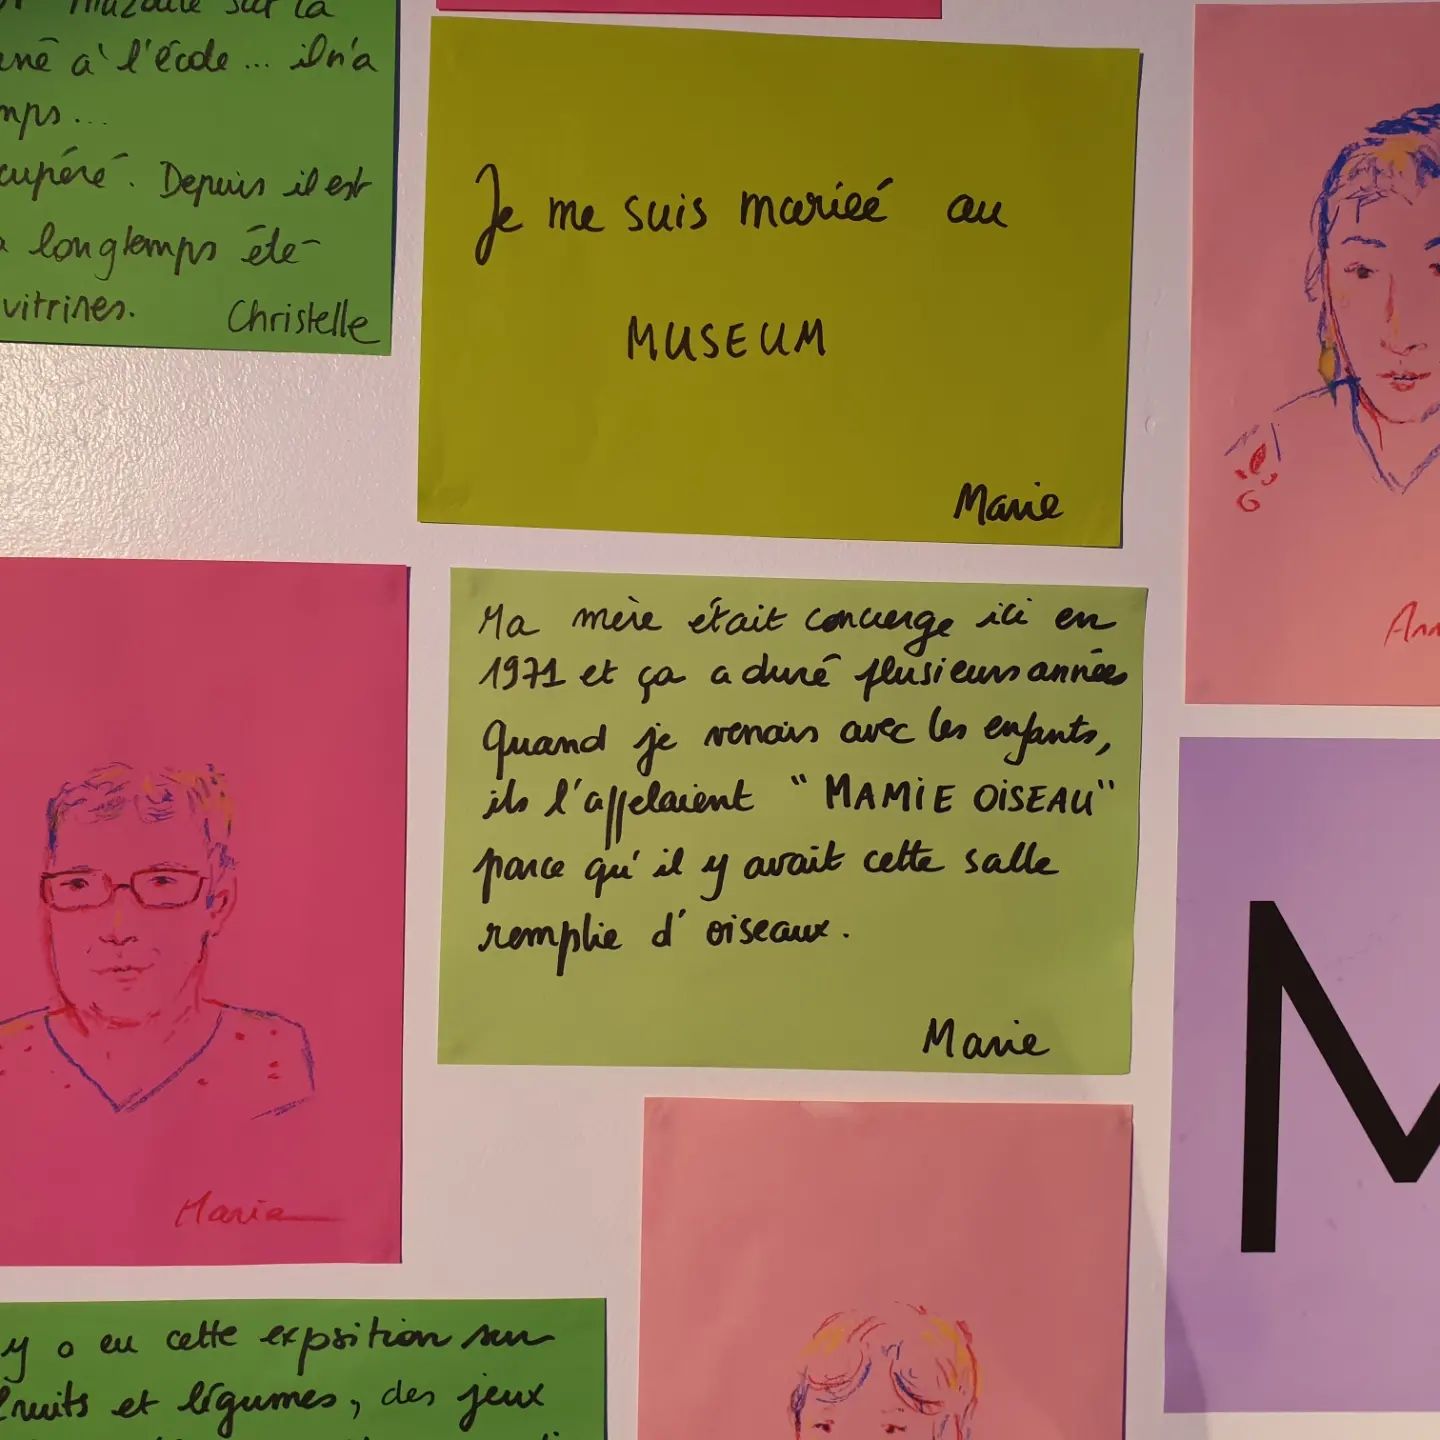 muzaille sur la
ené à l'école... il n'a
mps...
cupéré. Depuis il est
a longtemps été
vitrines.
Christelle
Je me suis mariée au
MUSEUM
Marie
Ma mère était concierge ici en
1971 et ça a duré plusieurs années
Quand je venais avec les enfants,
ils l'appelaient "MAMIE OISEAU"
parce qu'il y avait cette salle
remplie d'oiseaux.
Marie
Maria
Ann
M
y a eu cette expsition sur
fruits et légumes, des jeux